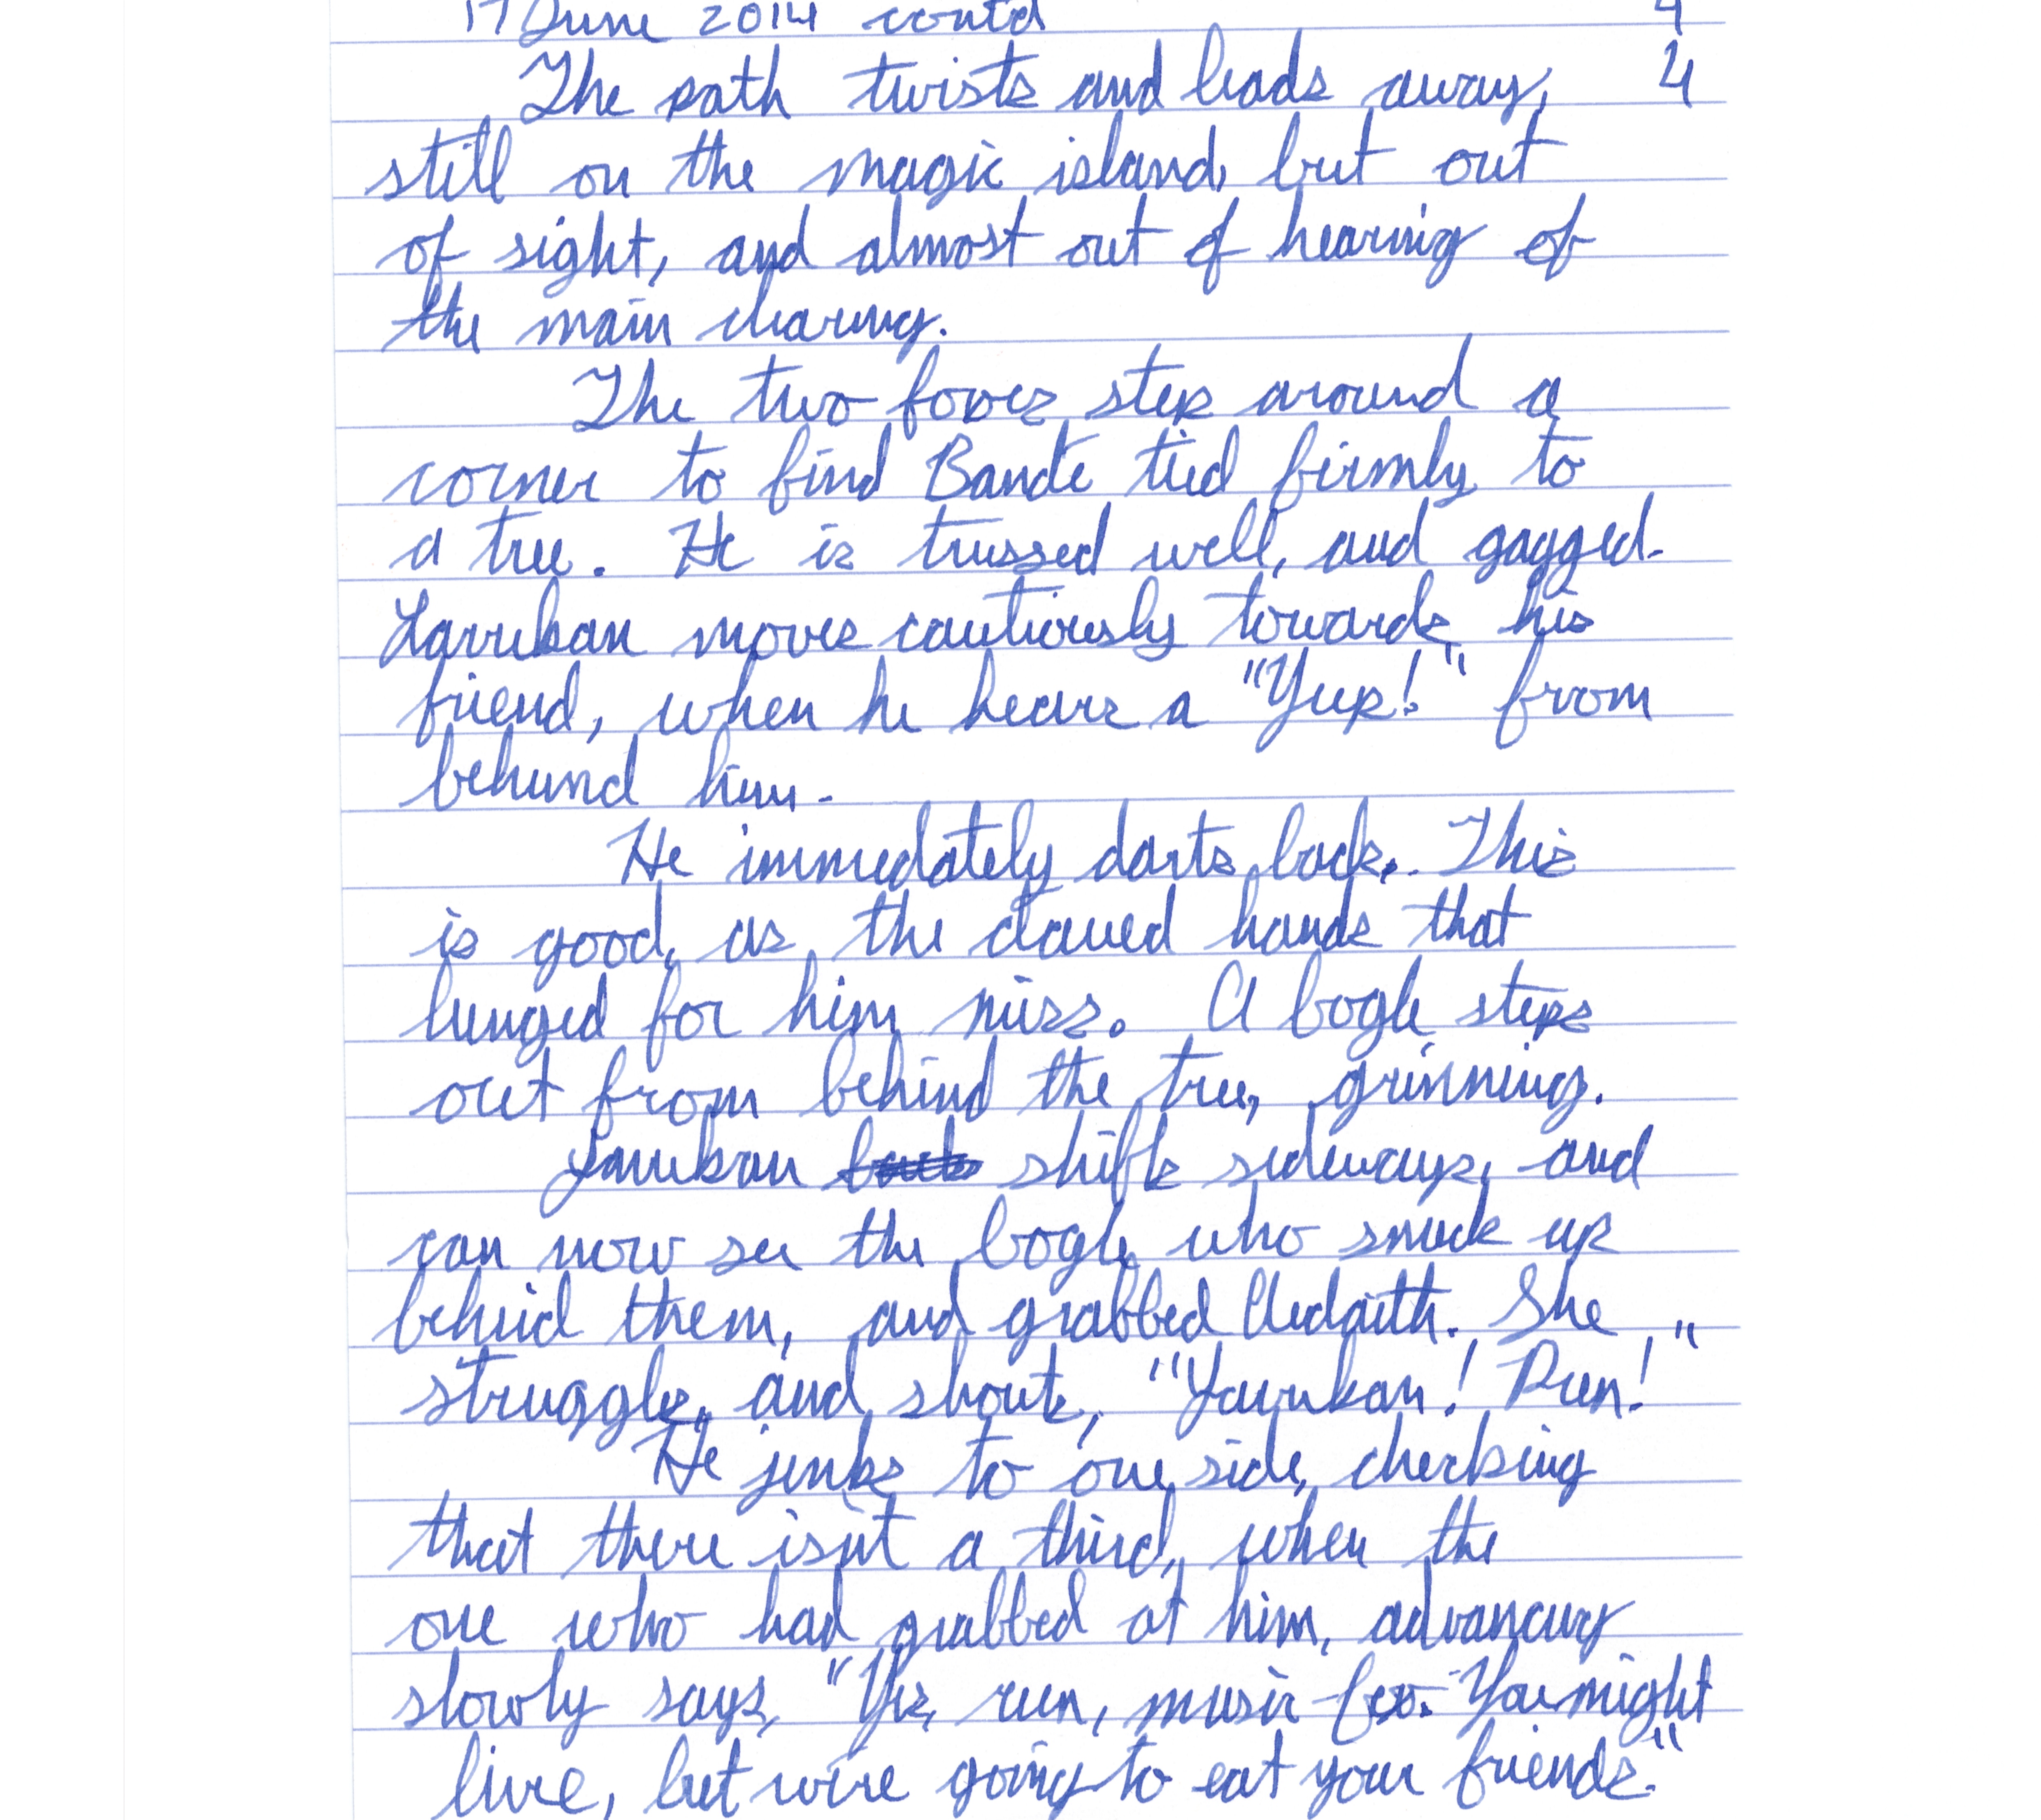 17 June 2014 contd 4
The path twists and leads away, 4
still on the magic island, but out
of sight, and almost out of hearing of
the main clearing.
The two foxes step around a
corner to find Bande tied firmly to
a tree. He is trussed well, and gagged.
moves cautiously towards his
friend, when he hears a "Yup!" from
behind him.
He immediately darts back. This
is good, as the clawed hands that
lunged for him miss. A bogle steps
out from behind the tree, grinning.
shifts sideways, and
can now see the bogle who snuck up
behind them, and grabbed. She
struggles, and shouts, "! Run!"
He jinks to one side, checking
that there isn't a third, when the
one who had grabbed at him, advancing
slowly says, "Yes, run, music fox. You might
live, but we're going to eat your friends."